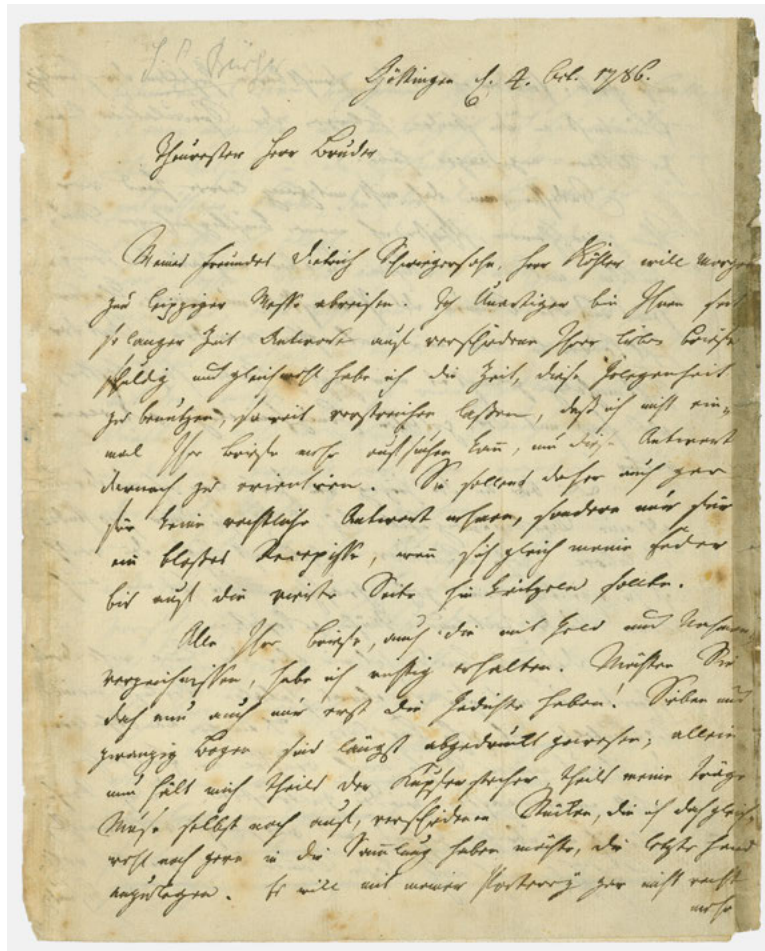 G. A. Bürger
Göttingen d. 4. Oct. 1786.
Theurester Herr Bruder
Meines Freundes Dietrich Schwiegersohn, Herr Köhler will morgen
zur Leipziger Messe abreisen. Ich Unartiger bin Ihnen seit
so langer Zeit Antwort auf verschiedene Ihrer lieben Briefe
schuldig und gleichwohl habe ich die Zeit, diese Gelegenheit
zu benutzen, so weit verstreichen laßen, daß ich nicht ein-
mal Ihre Briefe mehr aufsuchen kann, um diese Antwort
darnach zu orientiren. Sie sollens daher auch gar
für keine rechtliche Antwort nehmen, sondern nur für
ein bloßes Recepisse, wenn sich gleich meine Feder
bis auf die vierte Seite hin kritzeln sollte.
Alle Ihre Briefe, auch die mit Geld und Nahmen
verzeichnissen, habe ich richtig erhalten. Möchten Sie
doch nun auch nur erst die Gedichte haben! Sieben und
zwanzig Bogen sind längst abgedruckt gewesen; allein
nun hält mich theils der Kupferstecher, theils meine träge
Muse selbst noch auf, verschiedenen Stücken, die ich doch gleich-
wohl noch gern in die Sammlung haben möchte, die letzte Hand
anzulegen. Es will mit meiner Poeterey gar nicht recht
mehr